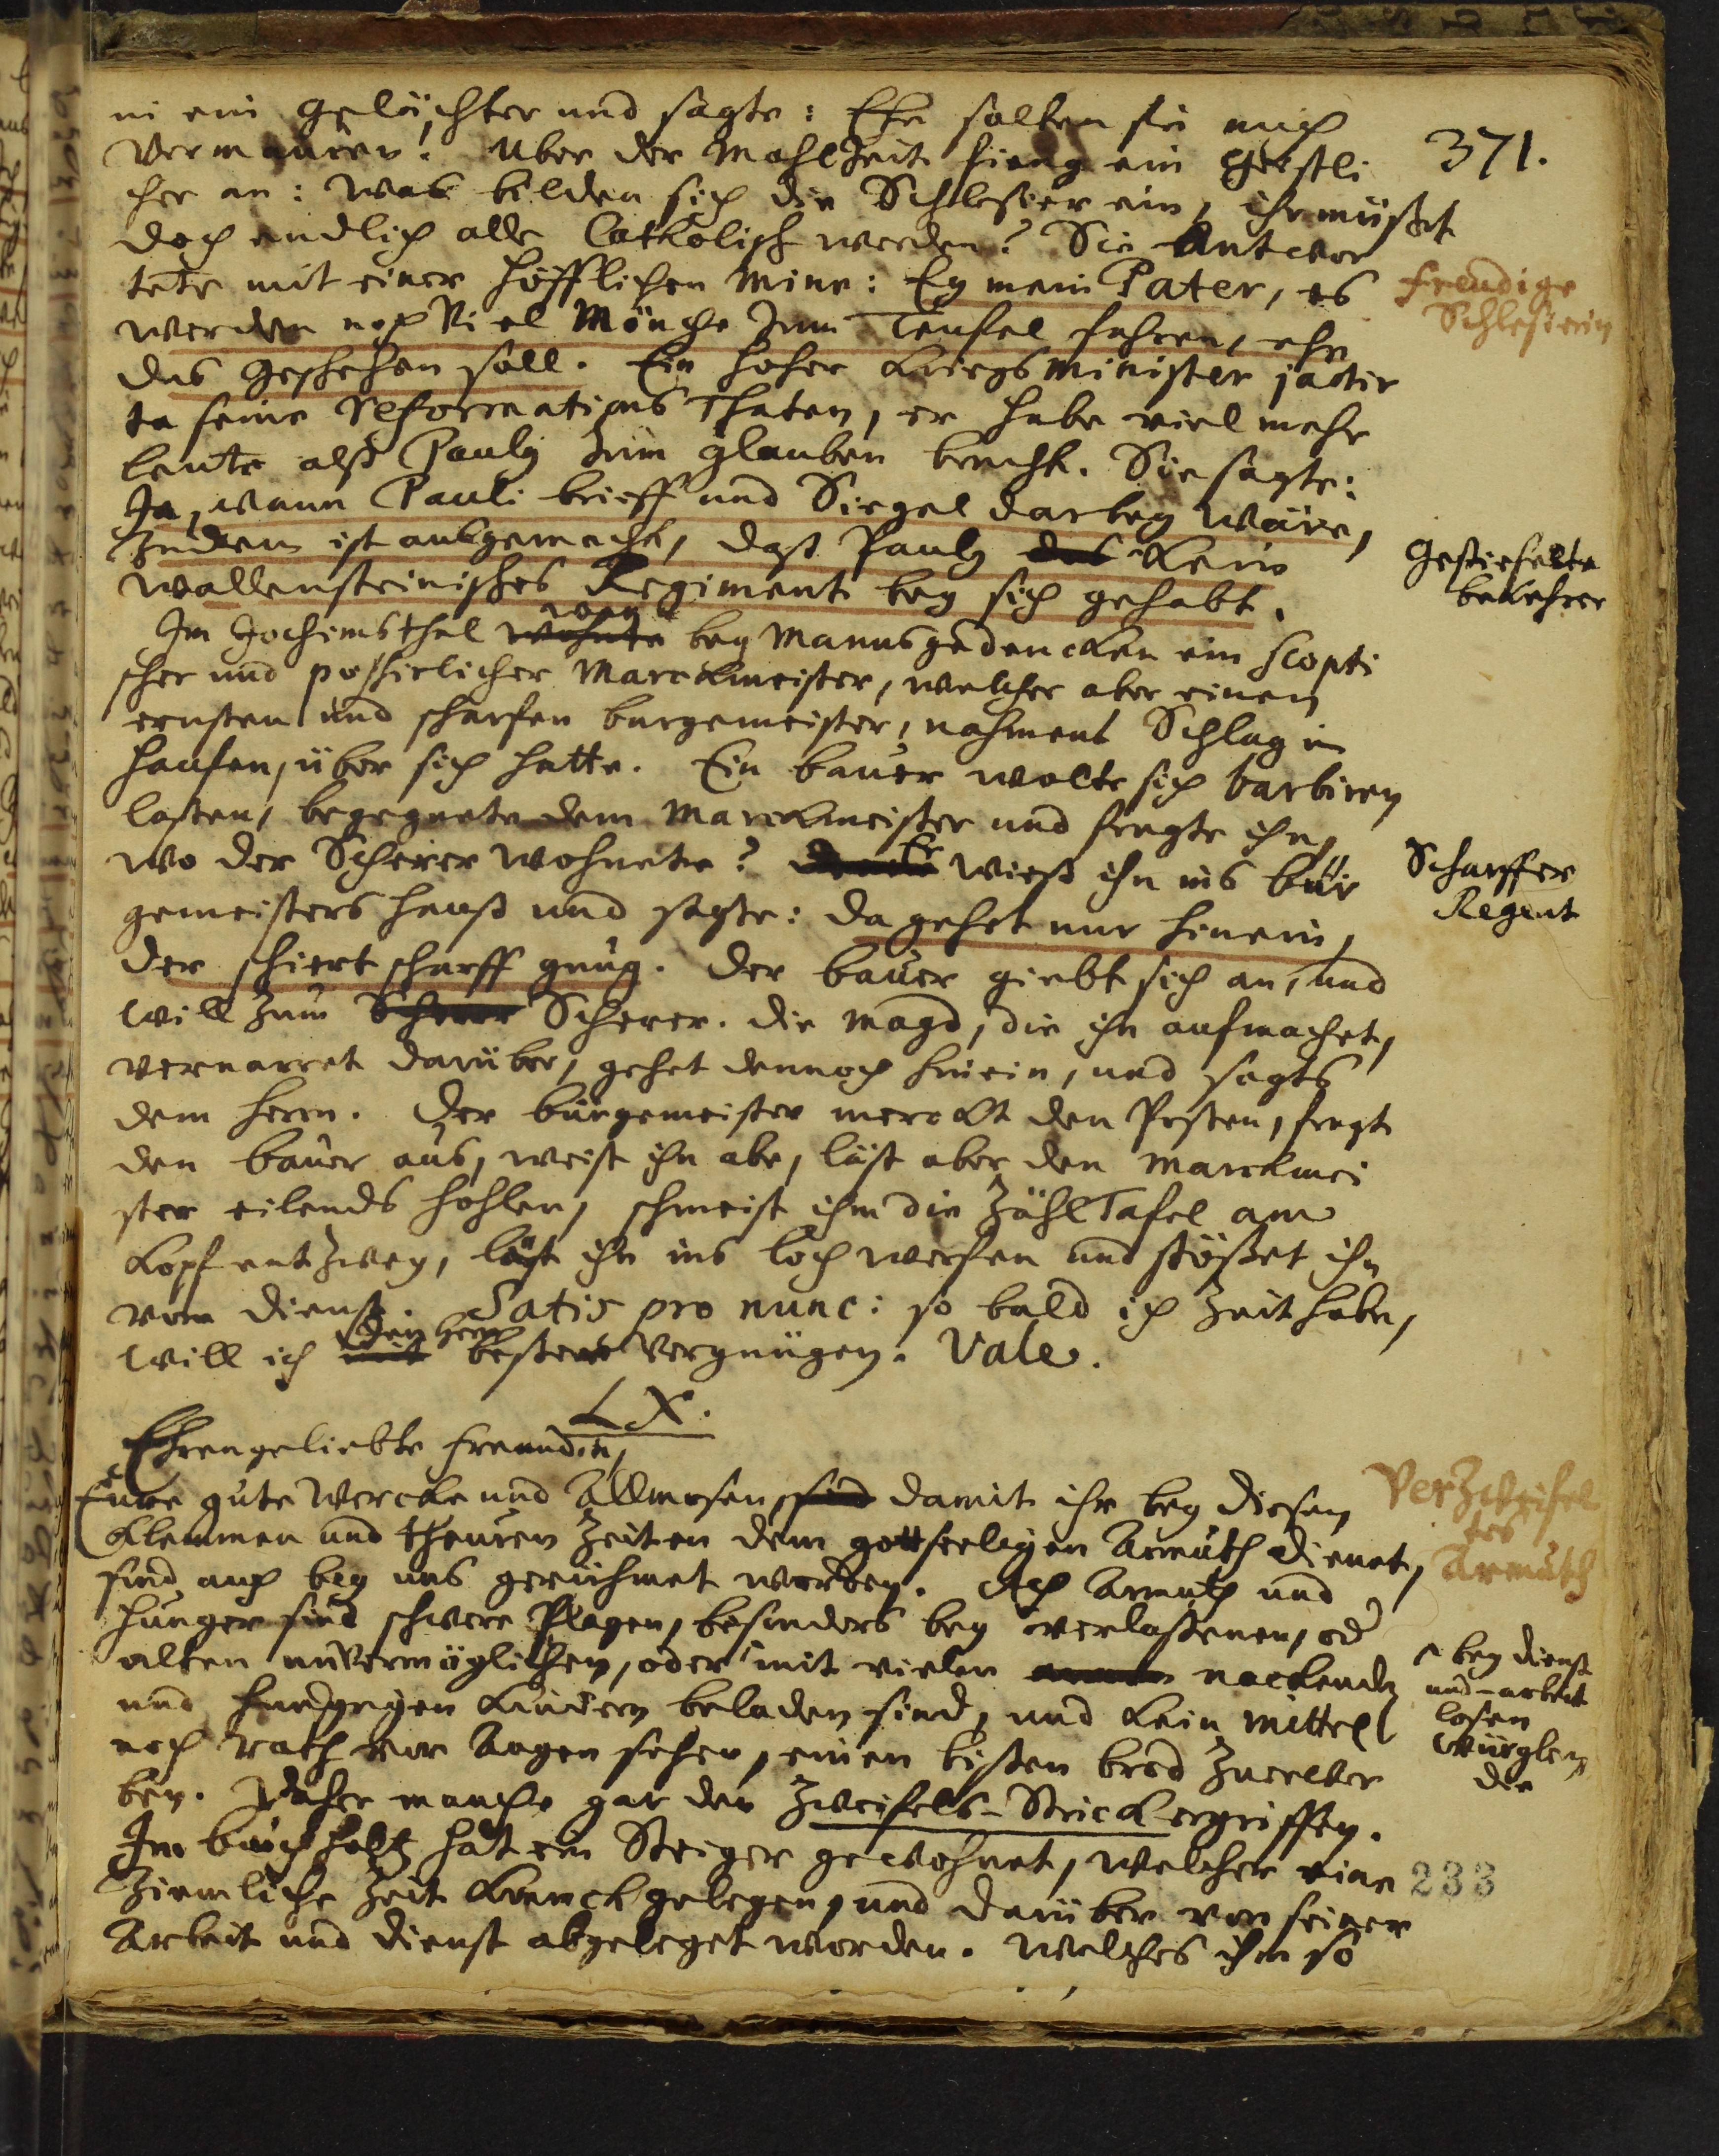 in ein gelächter und sagte: Ehe solten sie mich
vermauren! Uber der Mahlzeit fieng ein Geistli
371.
cher an: Was bilden sich die Schlesier ein, ihr müßet
doch endlich alle Catholisch werden? Sie Antwor
tete mit einer höfflichen Mine: Ey mein Pater, es
freudige
Schlesierin
werden noch viel Mönche zum Teufel fahren, ehe
das geschehen soll. Ein hoher Kriegsminister jactir
te seine Reformations Thaten, er habe viel mehr
leute alß Pauly zum glauben bracht. Sie sagte:
Ja, wann Pauli brieff und Siegel darbey wäre,
Zudem ist ausgemacht, daß Pauly das kein
gestiefelte
bekehrer
wallensteinisches Regiment bey sich gehabt.
Im Jochimsthal wohnte war bey Mannsgedencken ein scopti
scher und possierlicher Marckmeister, welcher aber einen
ernsten und scharfen burgemeister, nahmens Schlag in
haufen, über sich hatte. Ein bauer wolte sich barbiren
laßen, begegnete dem Marckmeister und fragte ihn,
wo der Scherer wohnete? Er wieß ihn ins bur
Scharffer
Regent
gemeisters hauß und sagte: da gehet nur hinein,
der schiert scharff gnug. Der bauer giebt sich an, und
will zum Scherer. die Magd, die ihn aufmachet,
vernarret darüber, gehet dennoch hinein, und sagts
dem herrn. Der burgemeister merckt den Poßen, fragt
den bauer aus, weist ihn abe, läst aber den Marckmei
ster eilends hohlen, schmeist ihm die ZählTafel am
Kopf entzwey, läst ihn ins loch werfen und stößet ihn
vom dienst. Satis pro nunc: so bald ich Zeit habe,
will ich mit den herrn bestens vergnügen. Vale.
LX.
Ehrengeliebte freundin,
Eure gute Wercke und Allmosen, sind damit ihr bey diesen
Verzweifel
tes
Armuth
klemmen und theuren Zeiten dem gottseeligen Armuth dienet,
sind auch bey uns gerühmet worden. Ach Armuth und
hunger sind schwere Plagen, besonders bey verlaßenen, od
alten unvermöglichen, oder mit vielen nackenden
bey dienst
und-arbeit
losen
die
und hungrigen Kindern beladen sind, und kein mittel
noch rath vor Augen sehen, einen bißen brod zu erwer
ben. Daher manche gar den Zweifels-Strick ergriffen.
Im buchholtz hat ein Steiger gewohnet, welcher eine
233
ziemliche Zeit kranck gelegen, und darüber von seiner
Arbeit und dienst abgeleget worden. Welches ihm so